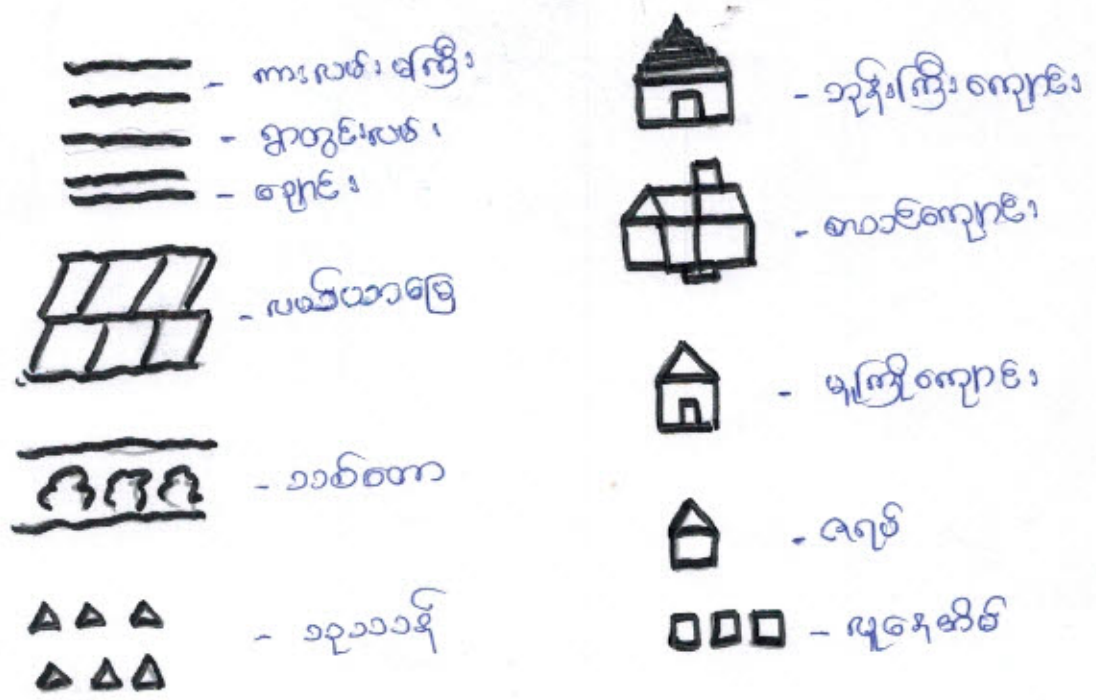 - ကားလမ်းမကြီး
- ရွာတွင်းလမ်း
- ချောင်း
- လယ်ယာမြေ
- သစ်တော
- သုသာန်
- ဘုန်းကြီးကျောင်း
- စာသင်ကျောင်း
- မူကြိုကျောင်း
- ဇရပ်
- လူနေအိမ်